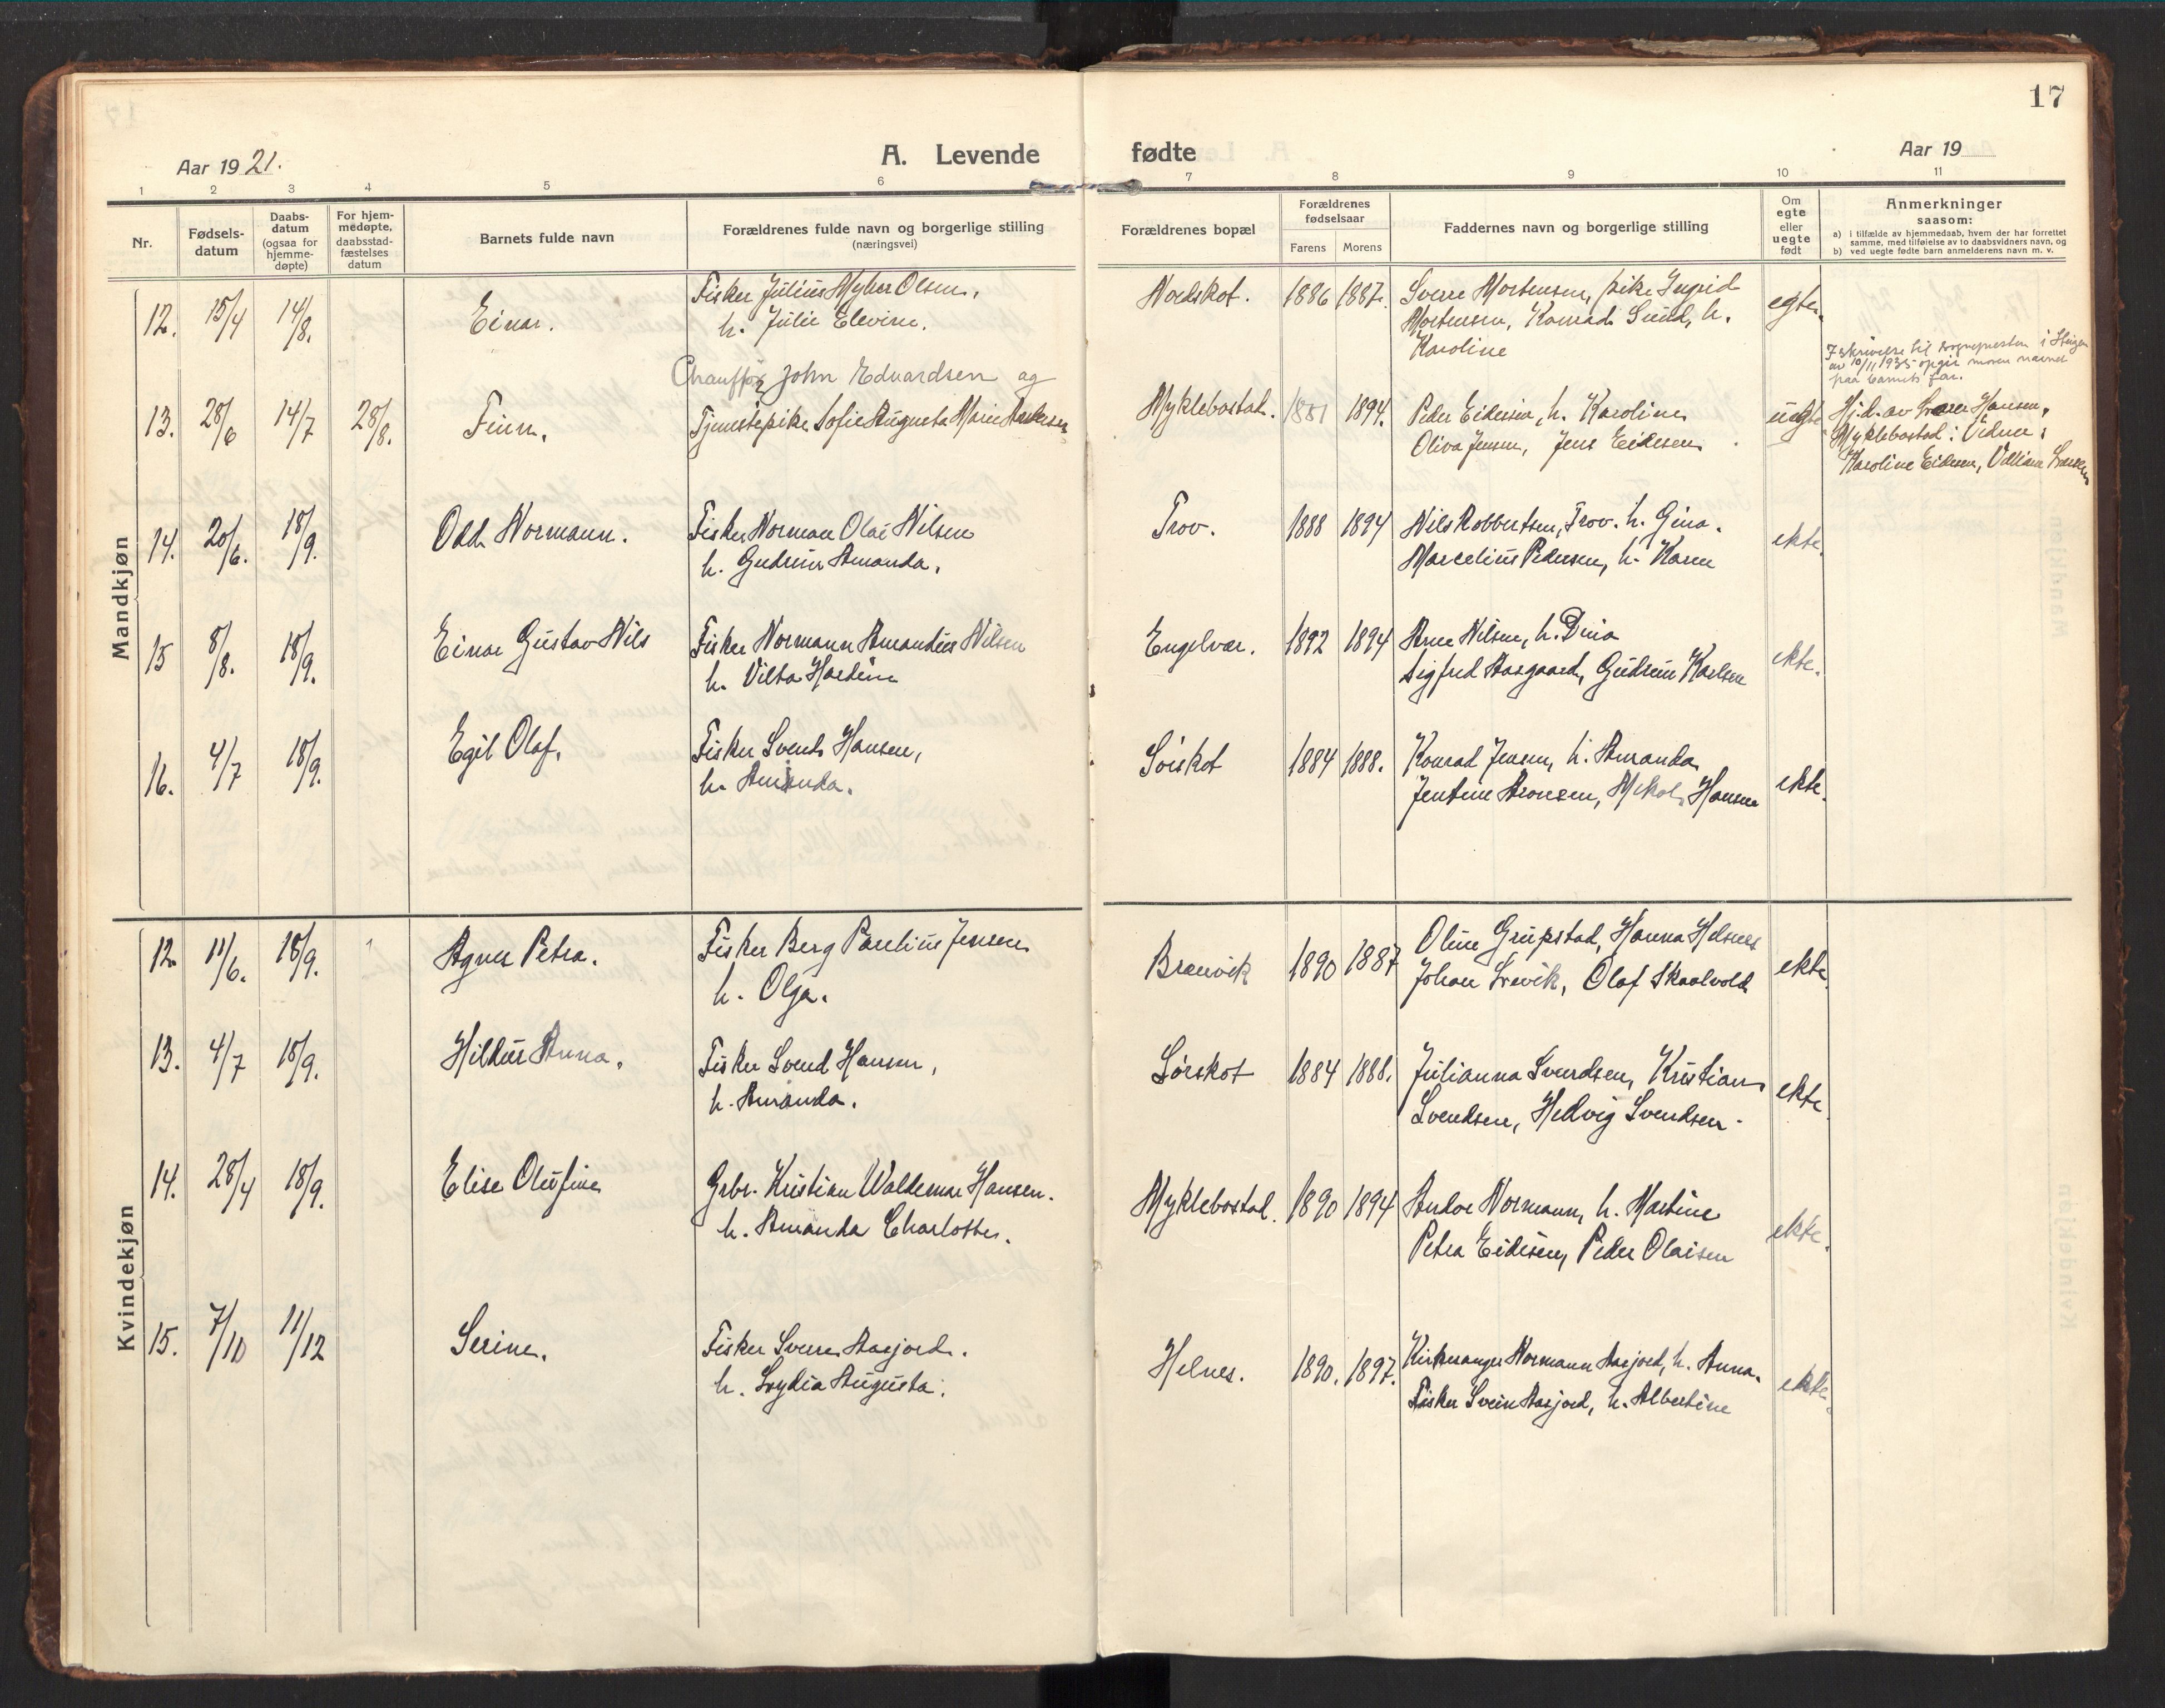 17
Aar 1921.
A. Levende fødte
Aar 19
1 2 3 4 5 6 7 8 9 10 11
Nr.
Fødsels-
datum
Daabs-
datum
(ogsaa for
hjemme-
døpte)
For hjem-
medøpte,
daabsstad-
fæstelses
datum
Barnets fulde navn
Forældrenes fulde navn og borgerlige stilling
(næringsvei)
Forældrenes bopæl
Forældrenes
fødselsaar
Farens Morens
Faddernes navn og borgerlige stilling
Om
egte
eller
uegte
født
Anmerkninger
saasom:
a) i tilfælde av hjemmedaab, hvem der har forrettet
samme, med tilføielse av to daabsvidners navn, og
b) ved uegte fødte barn anmelderens navn m. v.
Mandkjøn
12. 15/4 14/8. Einar.
Fisker Julius Olsen,
h. Julie Elevine.
Nordskot. 1886 1887.
Sverre Mortensen, pike Ingrid
Mortensen, Konrad Sund, h.
Karoline
egte.
13. 28/6 14/7 28/8. Finn.
Chauffør John Edvardsen og
Tjenestepike Sofie Augusta Marie
Myklebostad. 1881 1894.
Peder Eidesen, h. Karoline
Oliva Jensen, Jens Eidesen
uegte
I skrivelse til sognepresten i Steigen
av 10/11 1935 opgir moren navnet
paa barnets far.
Hj.d. av Hansen,
Myklebostad: Vidner:
Karoline Eidesen,
14. 20/6. 18/9. Odd Normann.
Fisker Norman Olai Nilsen
h. Gudrun Amanda.
Trov. 1888 1894
Nils Robbertsen, Trov. h. Gina.
Marcelius Pedersen, h. Karen
ekte.
15 8/8. 18/9. Einar Gustav Nils
Fisker Normann Amandus Nilsen
h. Vilba Hardine
Engelvær. 1892 1894
Arne Nilsen, h. Dina
Sigfred Aasgaard, Gudrun Karlsen
ekte.
16. 4/7 18/9. Egil Olaf.
Fisker Svend Hansen,
h. Amanda.
Sørskot 1884 1888.
Konrad Jensen, h. Amanda
Jentine Aronsen, Mekol Hansen
ekte.
Kvindekjøn
12. 11/6. 18/9. Agnes Petra.
Fisker Berg Paulius Jensen
h. Olga.
Brennvik 1890 1887
Oline Grupstad, Hanna Helsnes
Johan, Olaf Skaalvold
ekte.
13. 4/7 18/9. Hildur Anna.
Fisker Svend Hansen,
h. Amanda.
Sørskot 1884 1888.
Julianna Svendsen, Kristian
Svendsen, Hedvig Svendsen.
ekte.
14. 28/4 18/9. Elise Olufine
Grbr. Kristian Waldemar Hansen.
h. Amanda Charlotte.
Myklebostad. 1890 1894
Andor Normann, h. Martine
Petra Eidesen, Peder Olaisen
ekte.
15. 7/10 11/12 Serine.
Fisker Sverre Aasjord.
h. Lydia Augusta.
Helnes. 1890. 1897.
Kirkesanger Normann Aasjord, h. Anna.
Fisker Svein Aasjord, h. Albertine
ekte.